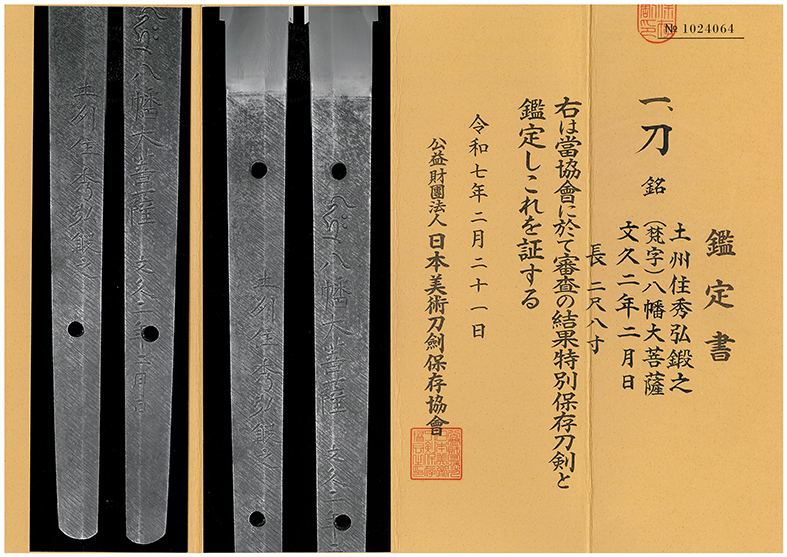 № 1024064
鑑定書
一、刀 銘 土州住秀弘鍛之
(梵字)八幡大菩薩
文久二年二月日
長 二尺八寸
右は當協會に於て審査の結果特別保存刀剣と
鑑定しこれを証する
令和七年二月二十一日
公益財團法人 日本美術刀劍保存協會
八幡大菩薩 文久二年二月日
土州住秀弘鍛之
八幡大菩薩 文久二年二
土州住秀弘鍛之